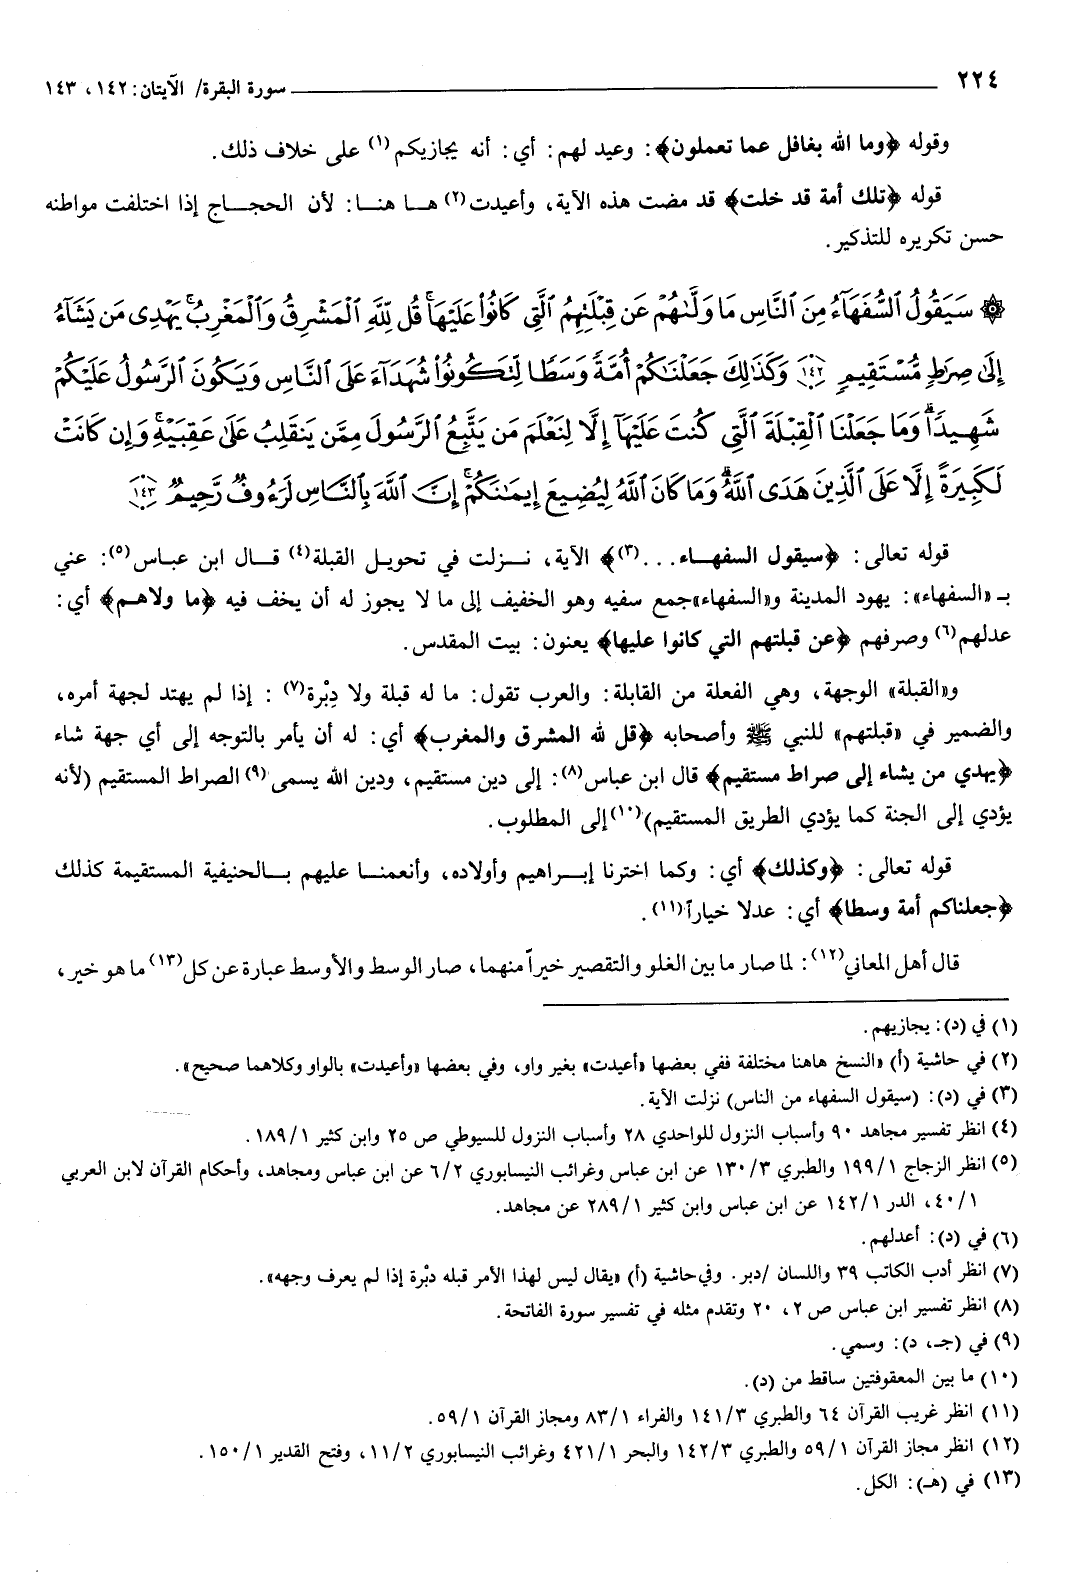 ٢٢٤ سورة البقرة/ الآيتان: ١٤٢، ١٤٣
وقوله ﴿وما الله بغافل عما تعملون﴾: وعيد لهم: أي: أنه يجازيكم(١) على خلاف ذلك.
قوله ﴿تلك أمة قد خلت﴾ قد مضت هذه الآية، وأعيدت(٢) هـا هنـا: لأن الحجـاج إذا اختلفت مواطنه
حسن تكريره للتذكير.
۞ سَيَقُولُ ٱلسُّفَهَآءُ مِنَ ٱلنَّاسِ مَا وَلَّىٰهُمْ عَن قِبْلَتِهِمُ ٱلَّتِى كَانُوا۟ عَلَيْهَا ۚ قُل لِّلَّهِ ٱلْمَشْرِقُ وَٱلْمَغْرِبُ ۚ يَهْدِى مَن يَشَآءُ
إِلَىٰ صِرَٰطٍ مُّسْتَقِيمٍ ١٤٢ وَكَذَٰلِكَ جَعَلْنَٰكُمْ أُمَّةً وَسَطًا لِّتَكُونُوا۟ شُهَدَآءَ عَلَى ٱلنَّاسِ وَيَكُونَ ٱلرَّسُولُ عَلَيْكُمْ
شَهِيدًا ۗ وَمَا جَعَلْنَا ٱلْقِبْلَةَ ٱلَّتِى كُنتَ عَلَيْهَآ إِلَّا لِنَعْلَمَ مَن يَتَّبِعُ ٱلرَّسُولَ مِمَّن يَنقَلِبُ عَلَىٰ عَقِبَيْهِ ۚ وَإِن كَانَتْ
لَكَبِيرَةً إِلَّا عَلَى ٱلَّذِينَ هَدَى ٱللَّهُ ۗ وَمَا كَانَ ٱللَّهُ لِيُضِيعَ إِيمَٰنَكُمْ ۚ إِنَّ ٱللَّهَ بِٱلنَّاسِ لَرَءُوفٌ رَّحِيمٌ ١٤٣
قوله تعالى: ﴿سيقول السفهـاء...(٣)﴾ الآية، نـزلت في تحويـل القبلة(٤) قـال ابن عبـاس(٥): عني
بـ «السفهاء»: يهود المدينة و«السفهاء»جمع سفيه وهو الخفيف إلى ما لا يجوز له أن يخف فيه ﴿ما ولاهـم﴾ أي:
عدلهم(٦) وصرفهم ﴿عن قبلتهم التي كانوا عليها﴾ يعنون: بيت المقدس.
و«القبلة» الوجهة، وهي الفعلة من القابلة: والعرب تقول: ما له قبلة ولا دِبْرة(٧): إذا لم يهتد لجهة أمره،
والضمير في «قبلتهم» للنبي ﷺ وأصحابه ﴿قل لله المشرق والمغرب﴾ أي: له أن يأمر بالتوجه إلى أي جهة شاء
﴿يهدي من يشاء إلى صراط مستقيم﴾ قال ابن عباس(٨): إلى دين مستقيم، ودين الله يسمى(٩) الصراط المستقيم (لأنه
يؤدي إلى الجنة كما يؤدي الطريق المستقيم)(١٠) إلى المطلوب.
قوله تعالى: ﴿وكذلك﴾ أي: وكما اخترنا إبـراهيم وأولاده، وأنعمنـا عليهم بـالحنيفية المستقيمة كذلك
﴿جعلناكم أمة وسطا﴾ أي: عدلا خياراً(١١).
قال أهل المعاني(١٢): لما صار ما بين الغلو والتقصير خيراً منهما، صار الوسط والأوسط عبارة عن كل(١٣) ما هو خير،
(١) في (د): يجازيهم.
(٢) في حاشية (أ) «النسخ هاهنا مختلفة ففي بعضها «أعيدت» بغير واو، وفي بعضها «وأعيدت» بالواو وكلاهما صحيح».
(٣) في (د): (سيقول السفهاء من الناس) نزلت الآية.
(٤) انظر تفسير مجاهد ٩٠ وأسباب النزول للواحدي ٢٨ وأسباب النزول للسيوطي ص ٢٥ وابن كثير ١/ ١٨٩.
(٥) انظر الزجاج ١/ ١٩٩ والطبري ٣/ ١٣٠ عن ابن عباس وغرائب النيسابوري ٢/ ٦ عن ابن عباس ومجاهد، وأحكام القرآن لابن العربي
١/ ٤٠، الدر ١/ ١٤٢ عن ابن عباس وابن كثير ١/ ٢٨٩ عن مجاهد.
(٦) في (د): أعدلهم.
(٧) انظر أدب الكاتب ٣٩ واللسان /دبر. وفي حاشية (أ) «يقال ليس لهذا الأمر قبله دبْرة إذا لم يعرف وجهه».
(٨) انظر تفسير ابن عباس ص ٢، ٢٠ وتقدم مثله في تفسير سورة الفاتحة.
(٩) في (جـ، د): وسمي.
(١٠) ما بين المعقوفتين ساقط من (د).
(١١) انظر غريب القرآن ٦٤ والطبري ٣/ ١٤١ والفراء ١/ ٨٣ ومجاز القرآن ١/ ٥٩.
(١٢) انظر مجاز القرآن ١/ ٥٩ والطبري ٣/ ١٤٢ والبحر ١/ ٤٢١ وغرائب النيسابوري ٢/ ١١، وفتح القدير ١/ ١٥٠.
(١٣) في (هـ): الكل.